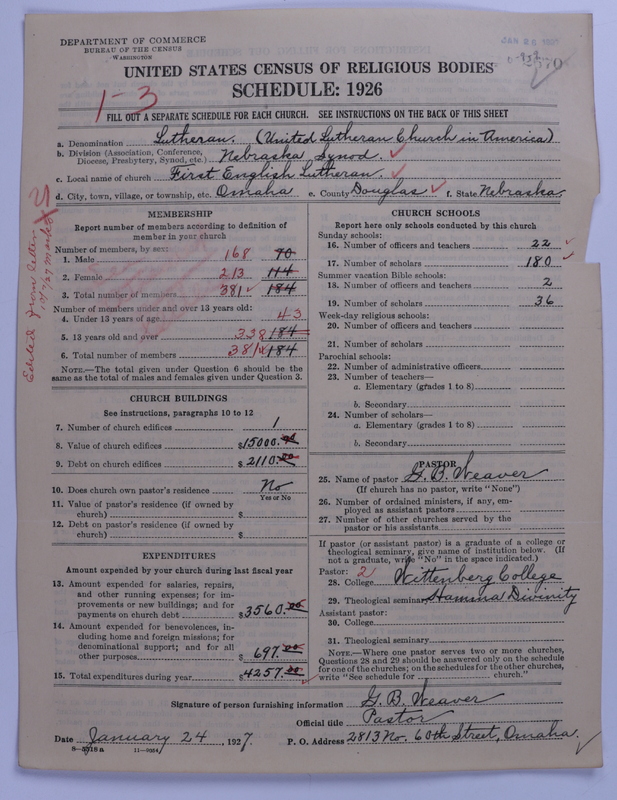 DEPARTMENT OF COMMERCE
BUREAU OF THE CENSUS
WASHINGTON
UNITED STATES CENSUS OF RELIGIOUS BODIES
SCHEDULE: 1926
1-3
FILL OUT A SEPARATE SCHEDULE FOR EACH CHURCH. SEE INSTRUCTIONS ON THE BACK OF THIS SHEET
a. Denomination Lutheran. (United Lutheran Church in America)
b. Division (Association, Conference, Diocese, Presbytery, Synod, etc.) Nebraska Synod.
c. Local name of church First English Lutheran.
d. City, town, village, or township, etc. Omaha e. County Douglas f. State Nebraska.
MEMBERSHIP
Report number of members according to definition of
member in your church
Number of members, by sex:
1. Male 168 70
2. Female 213 114
3. Total number of members 381 184
Number of members under and over 13 years old:
4. Under 13 years of age 43
5. 13 years old and over 338 184
6. Total number of members 381 184
NOTE.—The total given under Question 6 should be
same as the total of males and females given under Question 3.
CHURCH BUILDINGS
See instructions, paragraphs 10 to 12
7. Number of church edifices 1
8. Value of church edifices $15000.00
9. Debt on church edifices $2110.00
10. Does church own pastor's residence No
Yes or No
11. Value of pastor's residence (if owned by
church) $
12. Debt on pastor's residence (if owned by
church) $
EXPENDITURES
Amount expended by your church during last fiscal year
13. Amount expended for salaries, repairs,
and other running expenses; for im-
provements or new buildings; and for
payments on church debt $3560.00
14. Amount expended for benevolences, in-
cluding home and foreign missions; for
denominational support; and for all
other purposes $697.00
15. Total expenditures during year $4257.00
CHURCH SCHOOLS
Report here only schools conducted by this church
Sunday schools:
16. Number of officers and teachers 22
17. Number of scholars 180
Summer vacation Bible schools:
18. Number of officers and teachers 2
19. Number of scholars 36
Week-day religious schools:
20. Number of officers and teachers
21. Number of scholars
Parochial schools:
22. Number of administrative officers
23. Number of teachers—
a. Elementary (grades 1 to 8)
b. Secondary
24. Number of scholars—
a. Elementary (grades 1 to 8)
b. Secondary
PASTOR
25. Name of pastor G. B. Weaver
(If church has no pastor, write "None")
26. Number of ordained ministers, if any, em-
ployed as assistant pastors
27. Number of other churches served by the
pastor or his assistants
If pastor (or assistant pastor) is a graduate of a college or
theological seminary, give name of institution below. (If
not a graduate, write "No" in the space indicated.)
Pastor: 2
28. College Wittenberg College
29. Theological seminary Hamma Divinity
Assistant pastor:
30. College
31. Theological seminary
NOTE.—Where one pastor serves two or more churches,
Questions 28 and 29 should be answered only on the schedule
for one of the churches; on the schedules for the other churches,
write "See schedule for church."
Signature of person furnishing information G. B. Weaver
Official title Pastor
Date January 24, 1927. P. O. Address 2813 No. 60th Street, Omaha.
11-9064